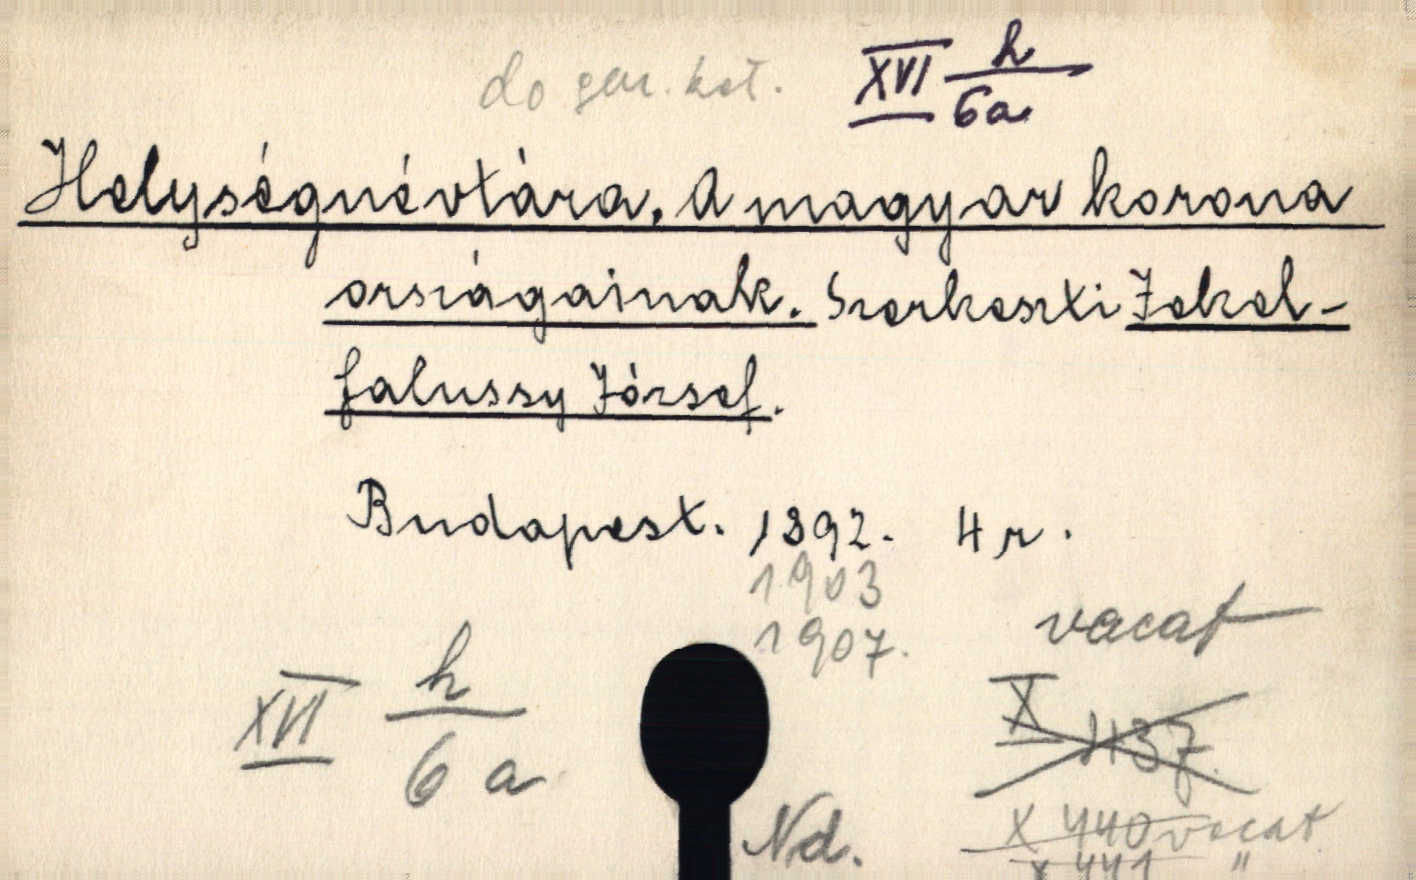 XVI h/6a
Helységnévtára, A magyar korona
országainak. Szerkeszti Jekel-
falussy József.
Budapest. 1892. 4 r.
1903
1907.
vacat
XVI h/6 a
X 437.
Nd.
X 440 vacat
X 441 "